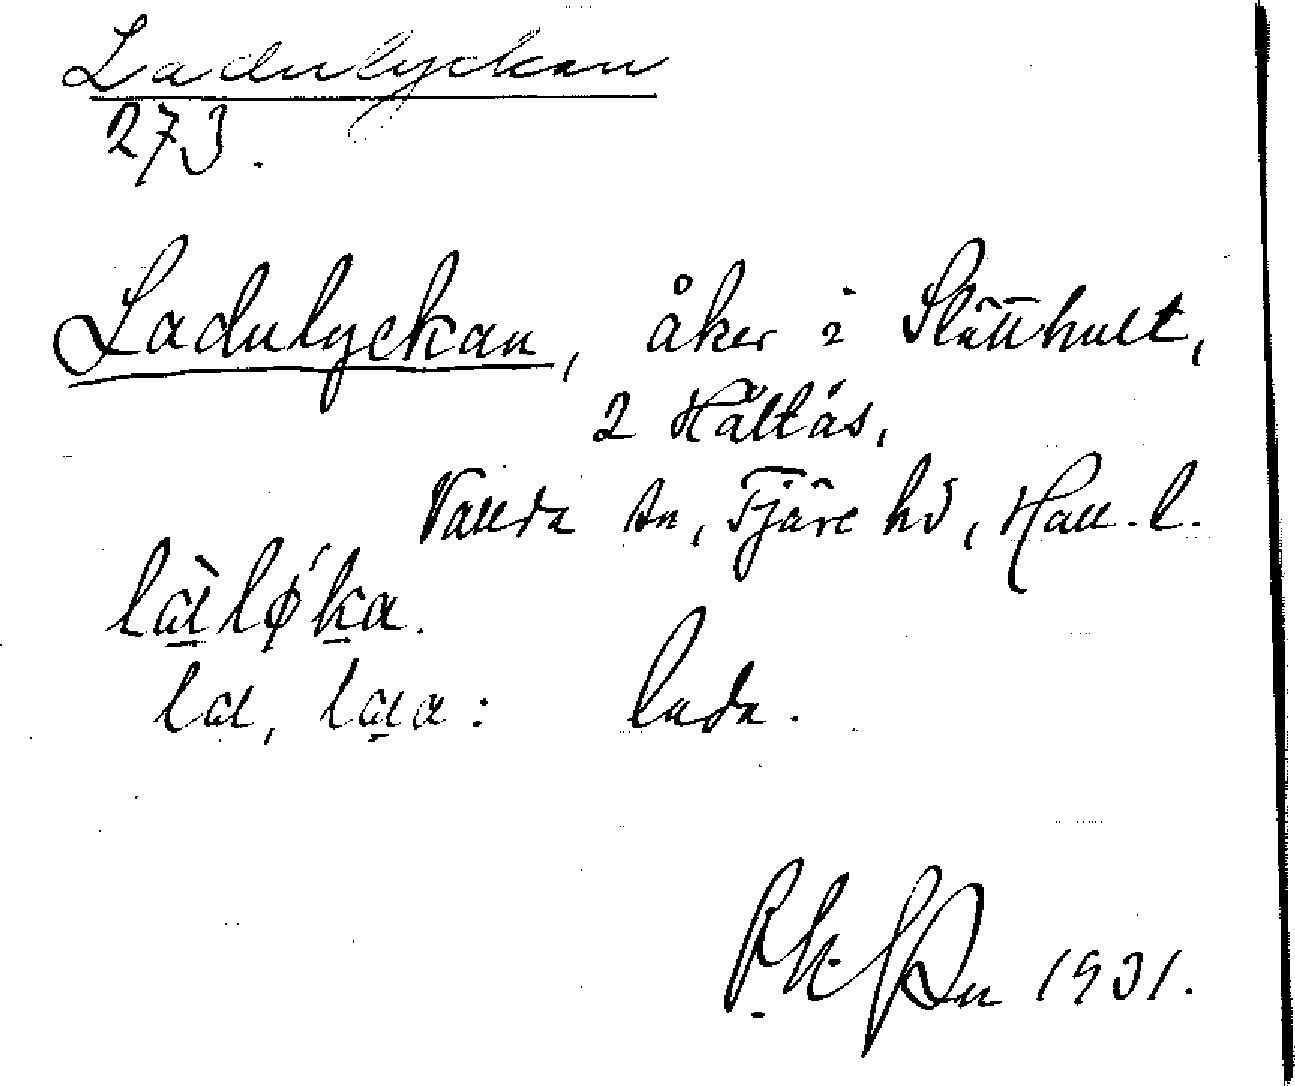 Ladulyckan
273.
Ladulyckan, åker i Slätthult,
2 Hältås,
Vallda sn, Fjäre hd, Hall. l.
lɑ̀lø´ka.
lɑ, lɑa: lada.
1931.